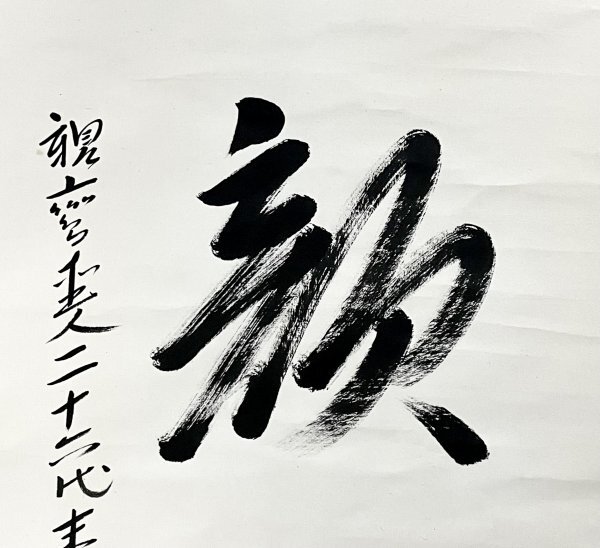 顔
親鸞聖人二十六代